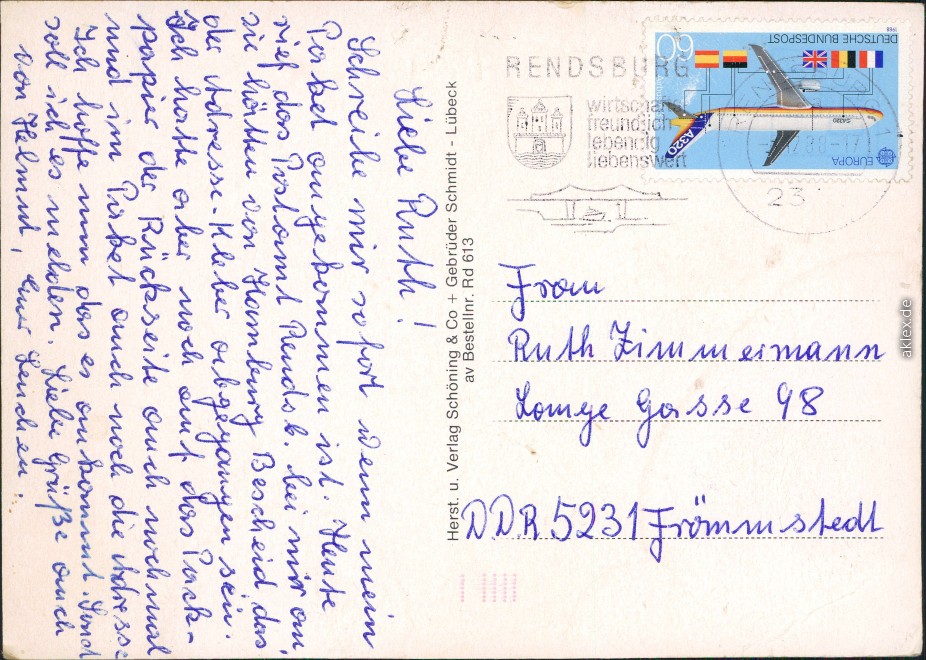 Liebe Ruth!
Schreibe mir sofort wenn mein
Packet angekommen ist. Heute
rief das Postamt Rendsb. bei mir an
sie hätten von Hamburg Bescheid das
die Adresse-Kleber abgegangen sein.
Ich hatte aber noch auf das Pack-
papier der Rückseite auch nochmal
und im Packet auch noch die Adresse
Ich hoffe nun das es ankommt. Sonst
soll ich es melden. Liebe Grüße auch
von Helmut, Euer Lenchen.
Herst. u. Verlag Schöning & Co + Gebrüder Schmidt - Lübeck
av Bestellnr. Rd 613
RENDSBURG
wirtschafts
freundlich
lebendig
liebenswert
23
DEUTSCHE BUNDESPOST
1988
60
A320
EUROPA
Frau
Ruth Zimmermann
Lange Gasse 98
DDR 5231 Frömmstedt
akpool.de